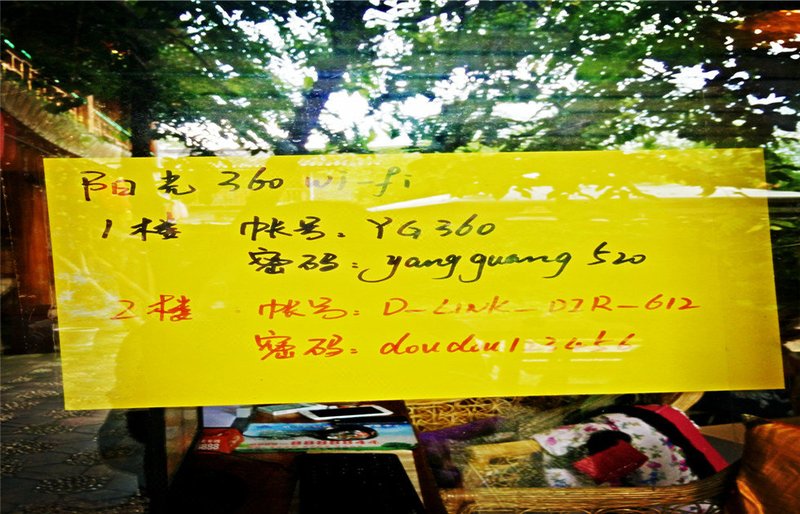 阳光 360 wi-fi
1楼 帐号: YG360
密码: yangguang 520
2楼 帐号: D-LINK-DIR-612
密码: doudou123456
8888